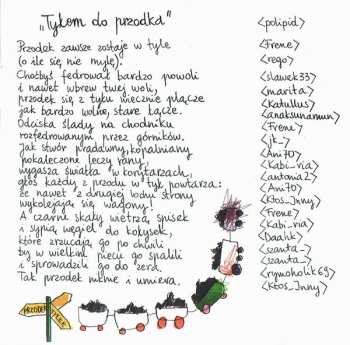 „Tyłem do przodka"
Przodek zawsze zostaje w tyle
(o ile się nie mylę).
Choćbyś fedrował bardzo powoli
i nawet wbrew twej woli,
przodek się z tyłu wiecznie plącze
jak bardzo wolne, stare łącze.
Odciska ślady na chodniku
rozfedrowanym przez górników.
Jak stwór pradawny, kopalniany
pokaleczone leczy rany,
wygasza światła w korytarzach,
głos każdy z przodu w tył powtarza:
że nawet z drugiej lodu strony
wykolejają się wagony!
A czarne skały wietrzą spisek
i sypią węgiel do kołysek,
które zrzucają go po chwili
by w wielkim piecu go spalili
i sprowadzili go do zera.
Tak przodek niknie i umiera.
<polipid>
<Frene>
<rego>
<slawek33>
<marita>
<Katullus>
<anaksunamun>
<Frene>
<jk_>
<Ani70>
<Kabi_ria>
<antonia2>
<Ani70>
<Ktos_Inny>
<Frene>
<Kabi_ria>
<Daahk>
<szanta_>
<szanta_>
<rymoholik69>
<Ktos_Inny>
PRZODEK